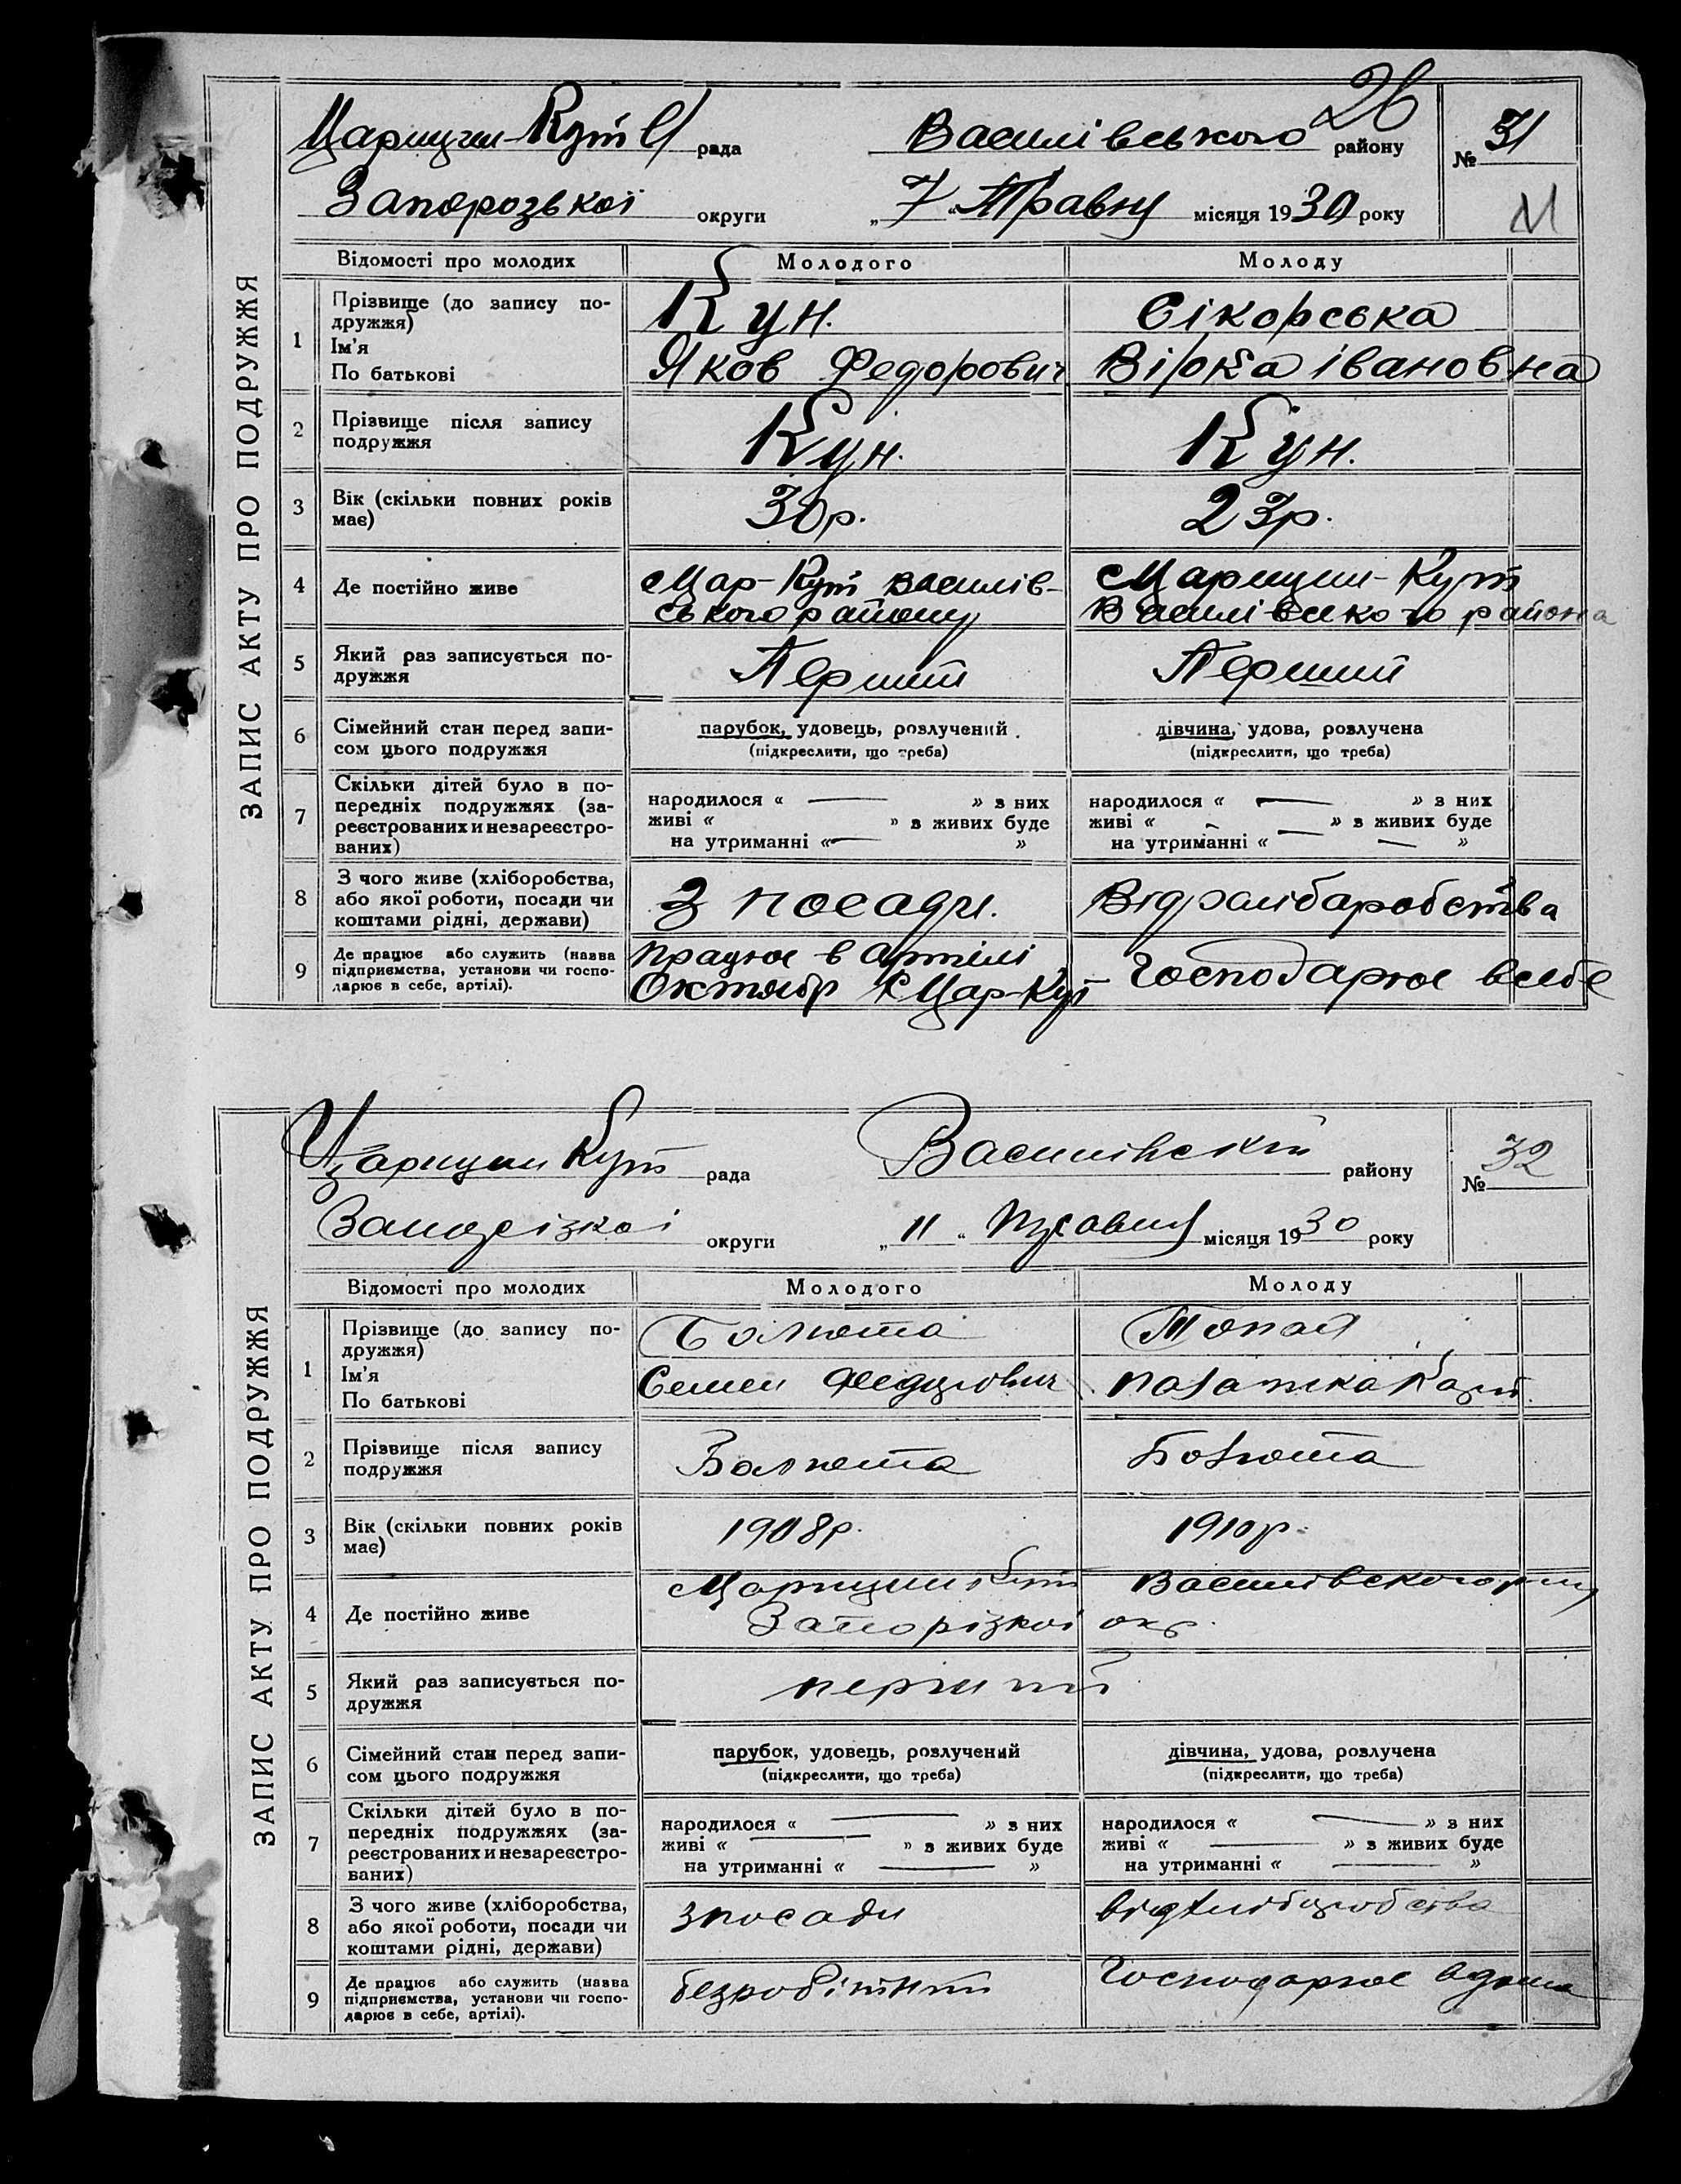 26
Царицин-Кут рада Василівського району № 31
Запорозької округи „7“ Травня місяця 1930 року
ЗАПИС АКТУ ПРО ПОДРУЖЖЯ
Відомості про молодих Молодого Молоду
1 Прізвище (до запису по-
дружжя)
Кун. Сікорська
Ім'я
По батькові
Яков Федорович Вірка Івановна
2 Прізвище після запису
подружжя
Кун. Кун.
3 Вік (скільки повних років
має)
30р. 23р.
4 Де постійно живе
Цар-Кут Василів-
ського району
Царицин-Кут
Василівського района
5 Який раз записується по-
дружжя
Перший Перший
6 Сімейний стан перед запи-
сом цього подружжя
парубок, удовець, розлучений
(підкреслити, що треба)
дівчина, удова, розлучена
(підкреслити, що треба)
7 Скільки дітей було в по-
передніх подружжях (за-
реєстрованих и незареєстро-
ваних)
народилося « — » з них
живі « » з живих буде
на утриманні « — »
народилося « — » з них
живі « — » з живих буде
на утриманні « — »
8 З чого живе (хліборобства,
або якої роботи, посади чи
коштами рідні, держави)
З посади. Від
9 Де працює або служить (назва
підприємства, установи чи госпо-
дарює в себе, артілі).
працює в артілі
Октябр Цар-Кут
Господарює в себе
Царицин Кут рада Василівський району № 32
Запорізкоі округи „11“ Травня місяця 1930 року
ЗАПИС АКТУ ПРО ПОДРУЖЖЯ
Відомості про молодих Молодого Молоду
1 Прізвище (до запису по-
дружжя)
Болюта Топал
Ім'я
По батькові
Семен Федорович
2 Прізвище після запису
подружжя
Болюта Болюта
3 Вік (скільки повних років
має)
1908р. 1910р.
4 Де постійно живе
Царицин Кут Василівского
Запорізкоі окр.
5 Який раз записується по-
дружжя
перший
6 Сімейний стан перед запи-
сом цього подружжя
парубок, удовець, розлучений
(підкреслити, що треба)
дівчина, удова, розлучена
(підкреслити, що треба)
7 Скільки дітей було в по-
передніх подружжях (за-
реєстрованих и незареєстро-
ваних)
народилося « — » з них
живі « — » з живих буде
на утриманні « — »
народилося « — » з них
живі « — » з живих буде
на утриманні « — »
8 З чого живе (хліборобства,
або якої роботи, посади чи
коштами рідні, держави)
з посади від хліборобства
9 Де працює або служить (назва
підприємства, установи чи госпо-
дарює в себе, артілі).
безробітний Господарює вдома